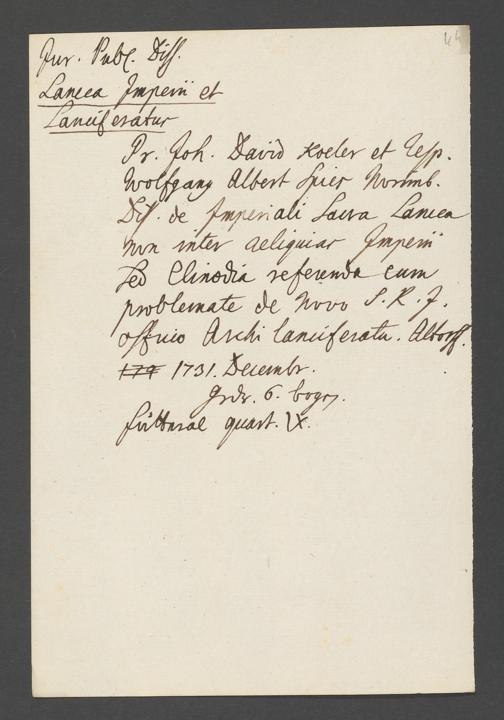 44
Jur. Publ. Diss.
Lancea Imperii et
Lanciferatus
Pr. Joh. David Koeler et Resp.
Wolfgang Albert Spies Norimb.
Diss. de Imperiali Sacra Lancea
non inter reliquias Imperii
sed Clinodia referenda cum
problemate de novo S. R. J.
officio Archi lanciferatu. Altorff.
1731. Decembr.
6. bogn.
quart. IX.